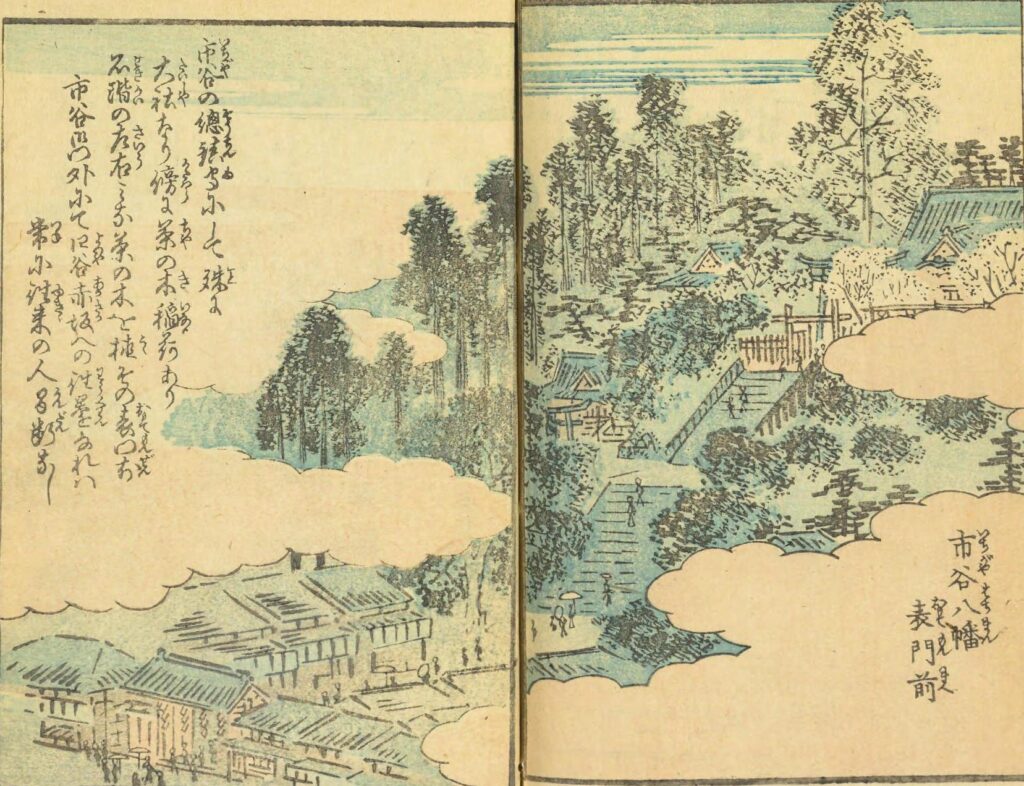 市谷八幡
表門前
市谷の總鎮守にして殊に
大社なり傍に茶の木稲荷あり
石階の左右みな茶の木を植その表門前
市谷御門外にて四谷赤坂への往還なれバ
常に往来の人間断なし